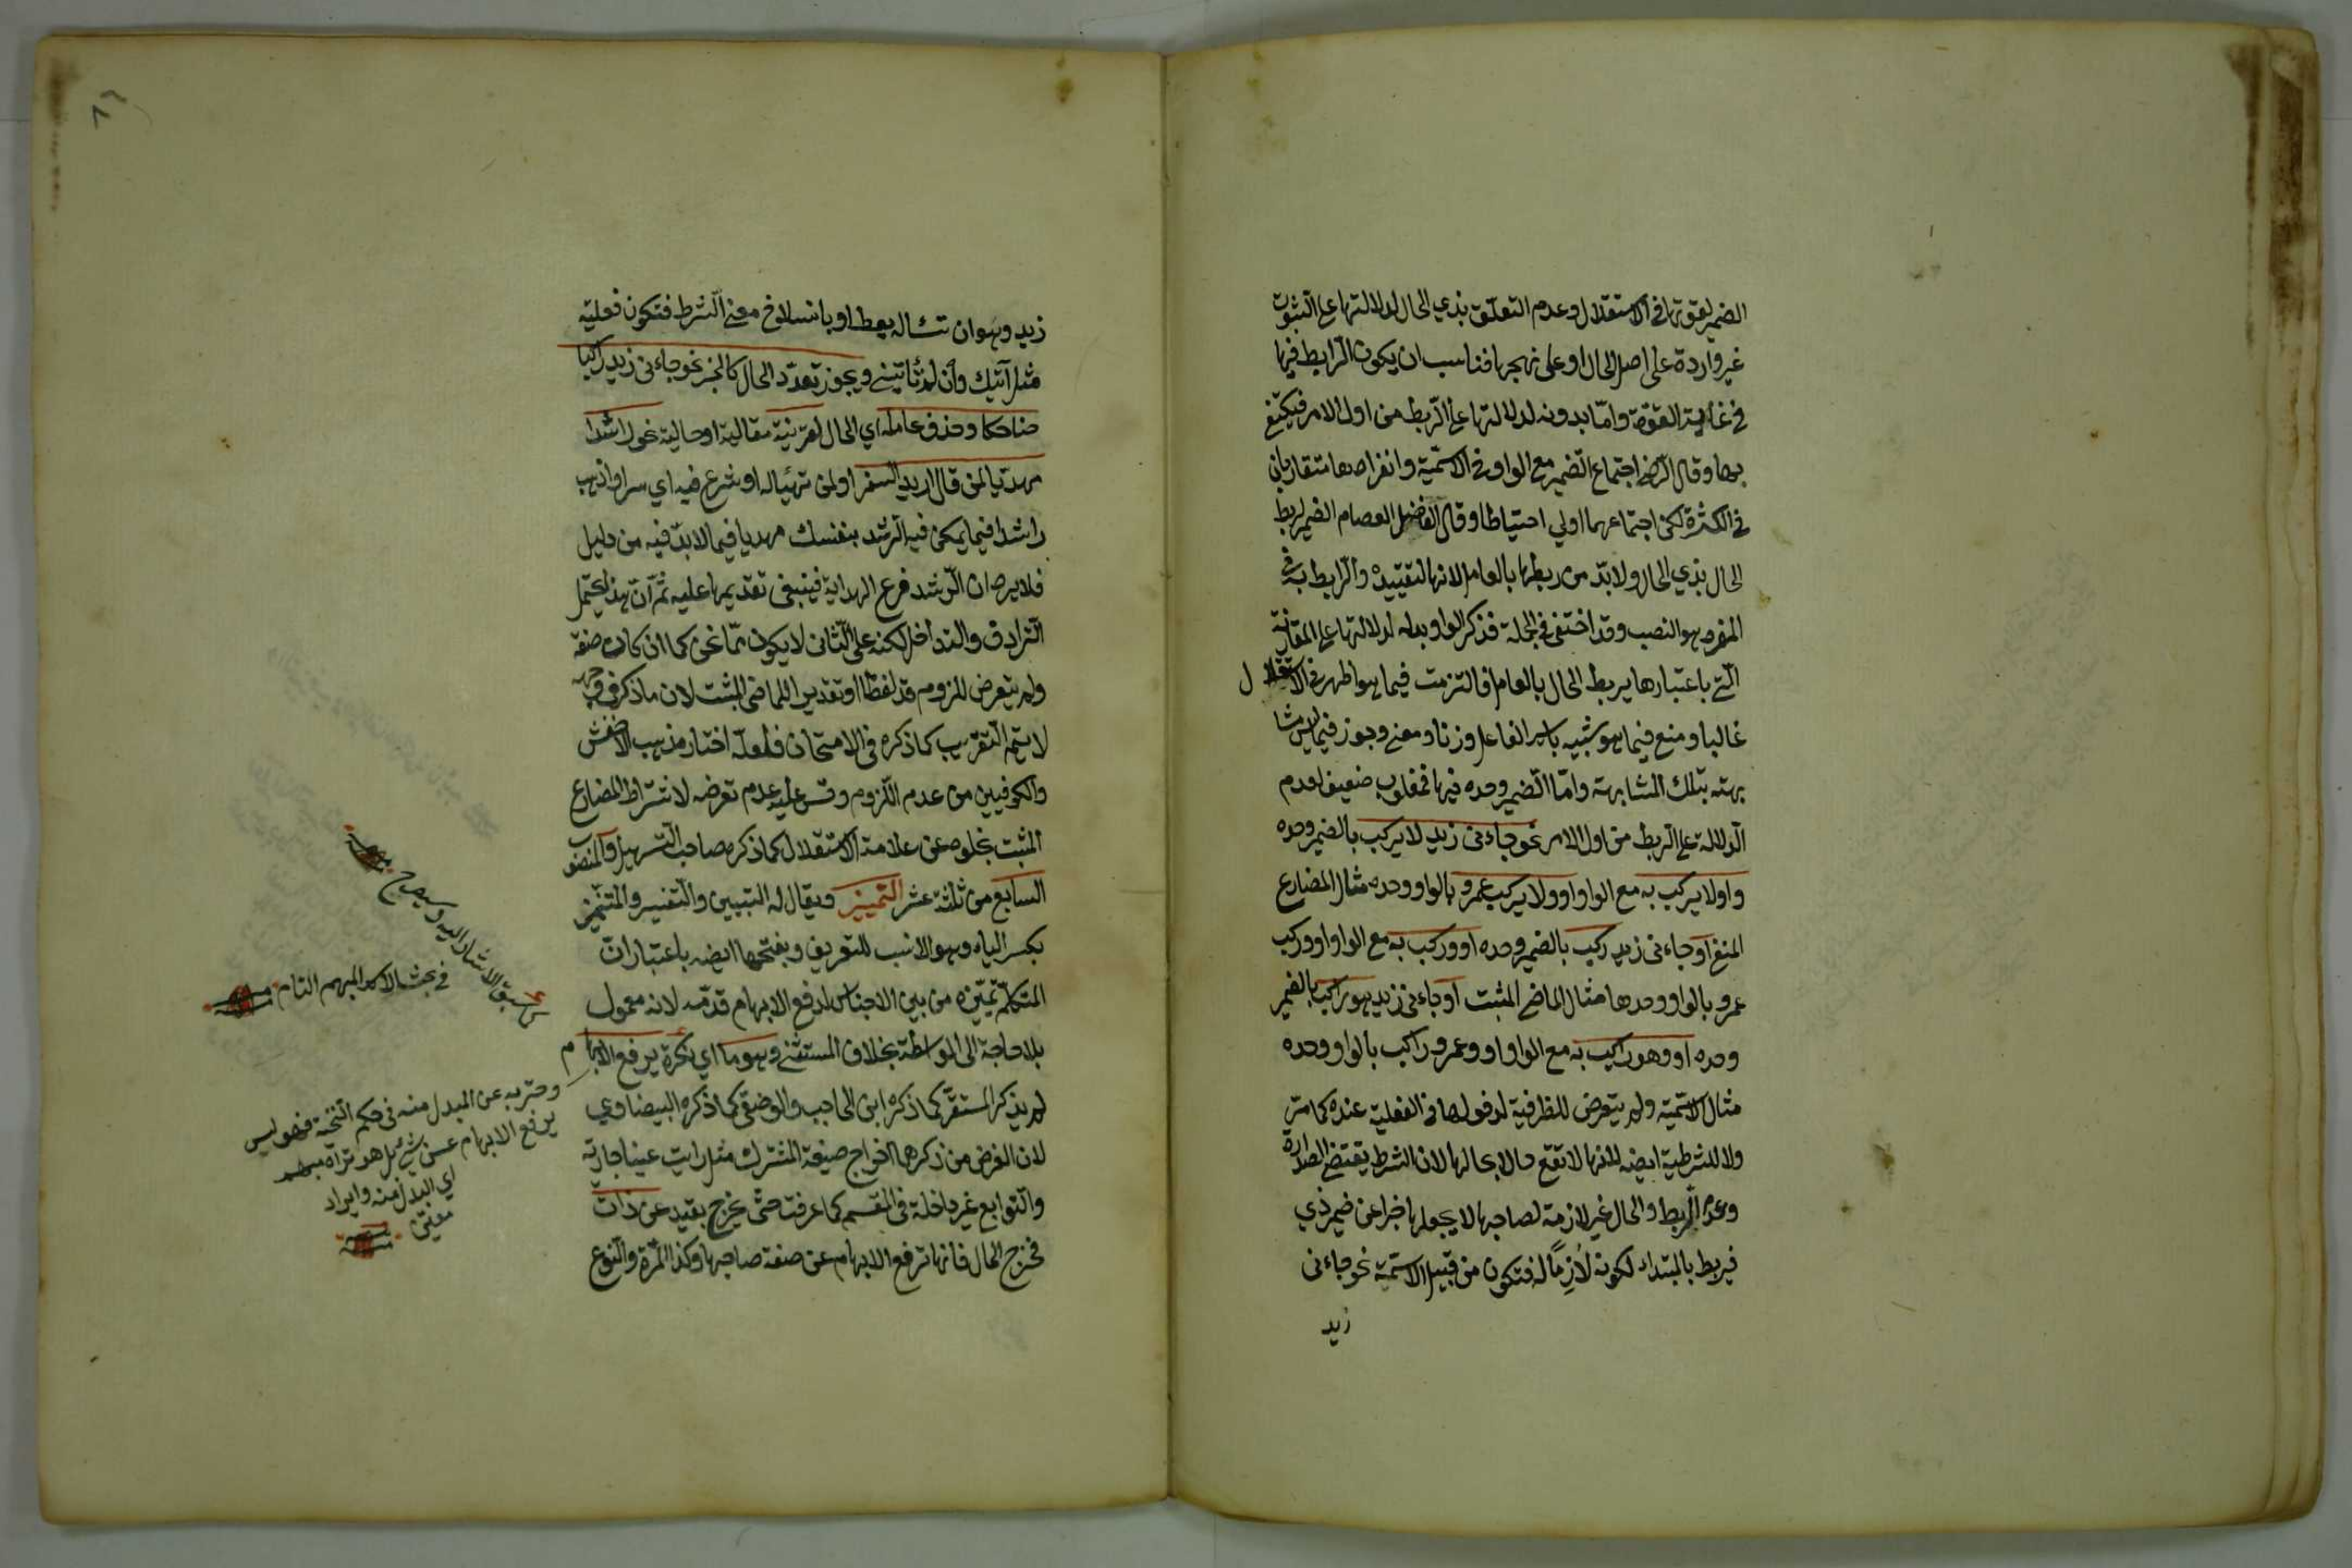 الضمير لقوتها في الاستقلال وعدم التعلق بذي الحال لدلالتها على الثبوت
غير واردة على اصل الحال او على نهجها فناسب ان يكون الرابط فيها
في غاية القوة واما بدونه لدلالتها على الربط من اول الامر فيكتفى
بها وقال الرضي اجتماع الضمير مع الواو في الاسمية وانفرادهما متقاربان
في الكثرة لكن اجتماعهما اولى احتياطا وقال الفاضل العصام الضمير لربط
الحال بذي الحال ولا بد من ربطها بالعامل لانها لتقييده والرابط به في
المفرد هو النصب وقد اختفى في الجملة فذكر الواو بدله لدلالتها على المقارنة
التي باعتبارها يربط الحال بالعامل فالتزمت فيما هو اظهر في الاستقلال
غالبا ومنع فيما هو شبيه باسم الفاعل وزنا ومعنى وجوز فيما ليس مشا
بهته بتلك المشابهة واما الضمير وحده فيها فمغلوب ضعيف لعدم
الدلالة على الربط من اول الامر نحو جاءنى زيد لا يركب بالضمير وحده
واو لا يركب به مع الواو او ولا يركب عمرو بالواو وحده مثال المضارع
المنفي او جاءنى زيد ركب بالضمير وحده او وركب به مع الواو او وركب
عمرو بالواو وحدها مثال الماضي المثبت او جاءنى زيد هو راكب بالضمير
وحده او وهو راكب به مع الواو او وعمرو راكب بالواو وحده
مثال الاسمية ولم يتعرض للظرفية لدخولها في الفعلية عنده كما مر
ولا للشرطية ايضه لانها لا تقع حالا بحالها لان الشرط يقتضي الصدارة
وعدم الربط والحال غير لازمة لصاحبها لا يجعلها خبرا عن ضمير ذي
فيربط بالمبتداء لكونه لازما له فتكون من قبيل الاسمية نحو جاءنى
زيد
زيد وهو ان تسأله يعط او بانسلاخ معنى الشرط فتكون فعلية
مثل آتيك وان لم تأتيني ويجوز تعدد الحال كالخبر نحو جاءنى زيد راكبا
ضاحكا وحذف عامله اي الحال لقرينة مقالية او حالية نحو راشدا
مهديا لمن قال اريد السفر او لمن تهيأ له او شرع فيه اي سر او اذهب
راشدا فيما يمكن فيه الرشد بنفسك مهديا فيما لا بد فيه من دليل
فلا يرد ان الرشد فرع الهداية فينبغى تقديمها عليه ثم ان هذا يحتمل
الترادف والتداخل لكنه على الثانى لا يكون مما نحن كما ان كان صفة
ولم يتعرض للزوم قد لفظا او تقديرا للماضى المثبت لان ما ذكر في وجهه
لا يتم التقريب كما ذكره في الامتحان فلعله اختار مذهب الاخفش
والكوفيين من عدم اللزوم وقس عليه عدم تعرضه لاشتراط المضارع
المثبت بخلوه عن علامة الاستقلال كما ذكره صاحب التسهيل والمنصوب
السابع من ثلثة عشر التمييز ويقال له التبيين والتفسير والمتميز
بكسر الياء وهو الانسب للتعريف وبفتحها ايضه باعتبار ان
المتكلم تميزه من بين الاجناس لدفع الابهام قدمه لانه معمول
بلا حاجة الى الواسطة بخلاف المستثنى وهو ما اي نكرة يرفع الابهام
لم يذكر المستقر كما ذكره ابن الحاجب والوضعي كما ذكره البيضاوي
لان الغرض من ذكرهما اخراج صيغة المشترك مثل رايت عينا جارية
والتوابع غير داخلة في المقسم كما عرفت حتى يخرج بقيد عن ذات
فخرج الحال فانها ترفع الابهام عن صفة صاحبها وكذا المرة والنوع
سبق الاشارة اليه وسيصرح
في بحث الاسم المبهم التام
وحترز به عن المبدل منه في حكم التنحية فهو ليس
يرفع الابهام عن شئ بل هو ترك مبهم
اي المبدل منه وايراد
معين